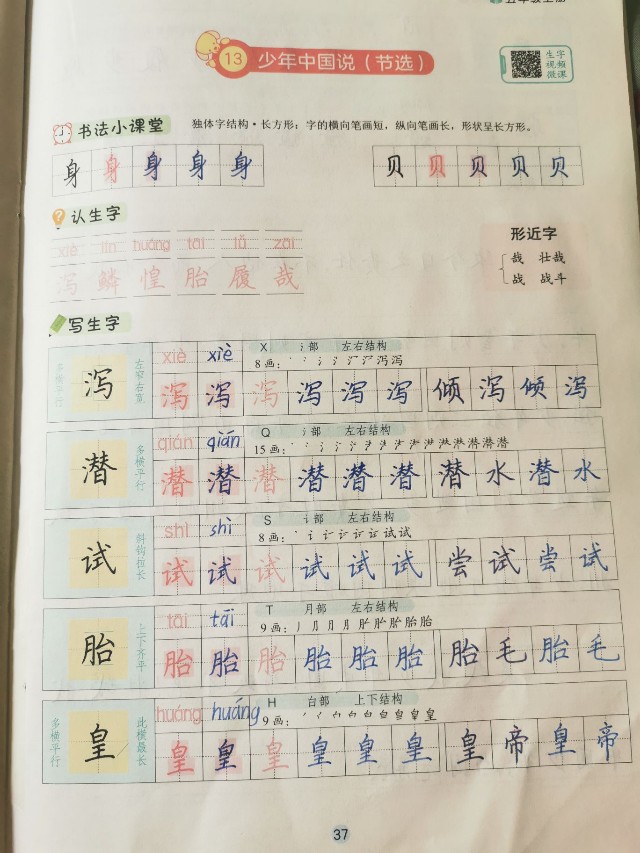 13 少年中国说（节选）
生字
视频
微课
书法小课堂 独体字结构·长方形：字的横向笔画短，纵向笔画长，形状呈长方形。
身 身 身 身 身 贝 贝 贝 贝 贝
认生字
xiè lín huáng tāi lǚ zāi
泻 鳞 惶 胎 履 哉
形近字
哉 壮哉
战 战斗
写生字
多横平行 泻 左窄右宽
xiè xiè X 氵部 左右结构
8画：
泻 泻 泻 泻 泻 泻 倾 泻 倾 泻
潜 多横平行
qián qián Q 氵部 左右结构
15画：
潜 潜 潜 潜 潜 潜 潜 水 潜 水
试 斜钩恒长
shì shì S 讠部 左右结构
8画：
试 试 试 试 试 试 尝 试 尝 试
胎 上下齐平
tāi tāi T 月部 左右结构
9画：
胎 胎 胎 胎 胎 胎 胎 毛 胎 毛
多横平行 皇 此横最长
huáng huáng H 白部 上下结构
9画：
皇 皇 皇 皇 皇 皇 皇 帝 皇 帝
37